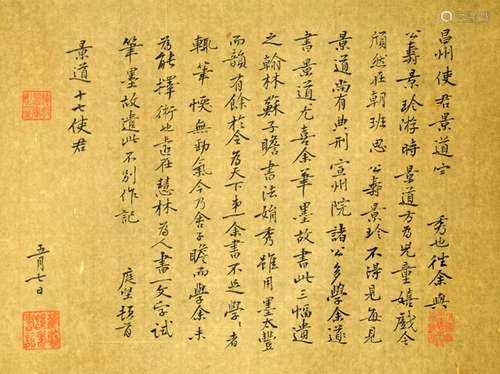 昌州使君景道宗 秀也往余與
公壽景珍游時景道方為兒童嬉戲今
頎然在朝班思 公壽景珍不得見每見
景道尚有典刑宣州院諸公多學余道
書景道尤喜余筆墨故書此三幅遺
之翰林蘇子瞻書法娟秀雖用墨太豐
而韻有餘於今為天下第一余書不足學〻者
輒筆懦無勁氣今乃舍子瞻而學余未
為能擇術也適在慧林為人書一文字試
筆墨故遣此不別作記 庭堅頓首
景道十七使君
五月七日